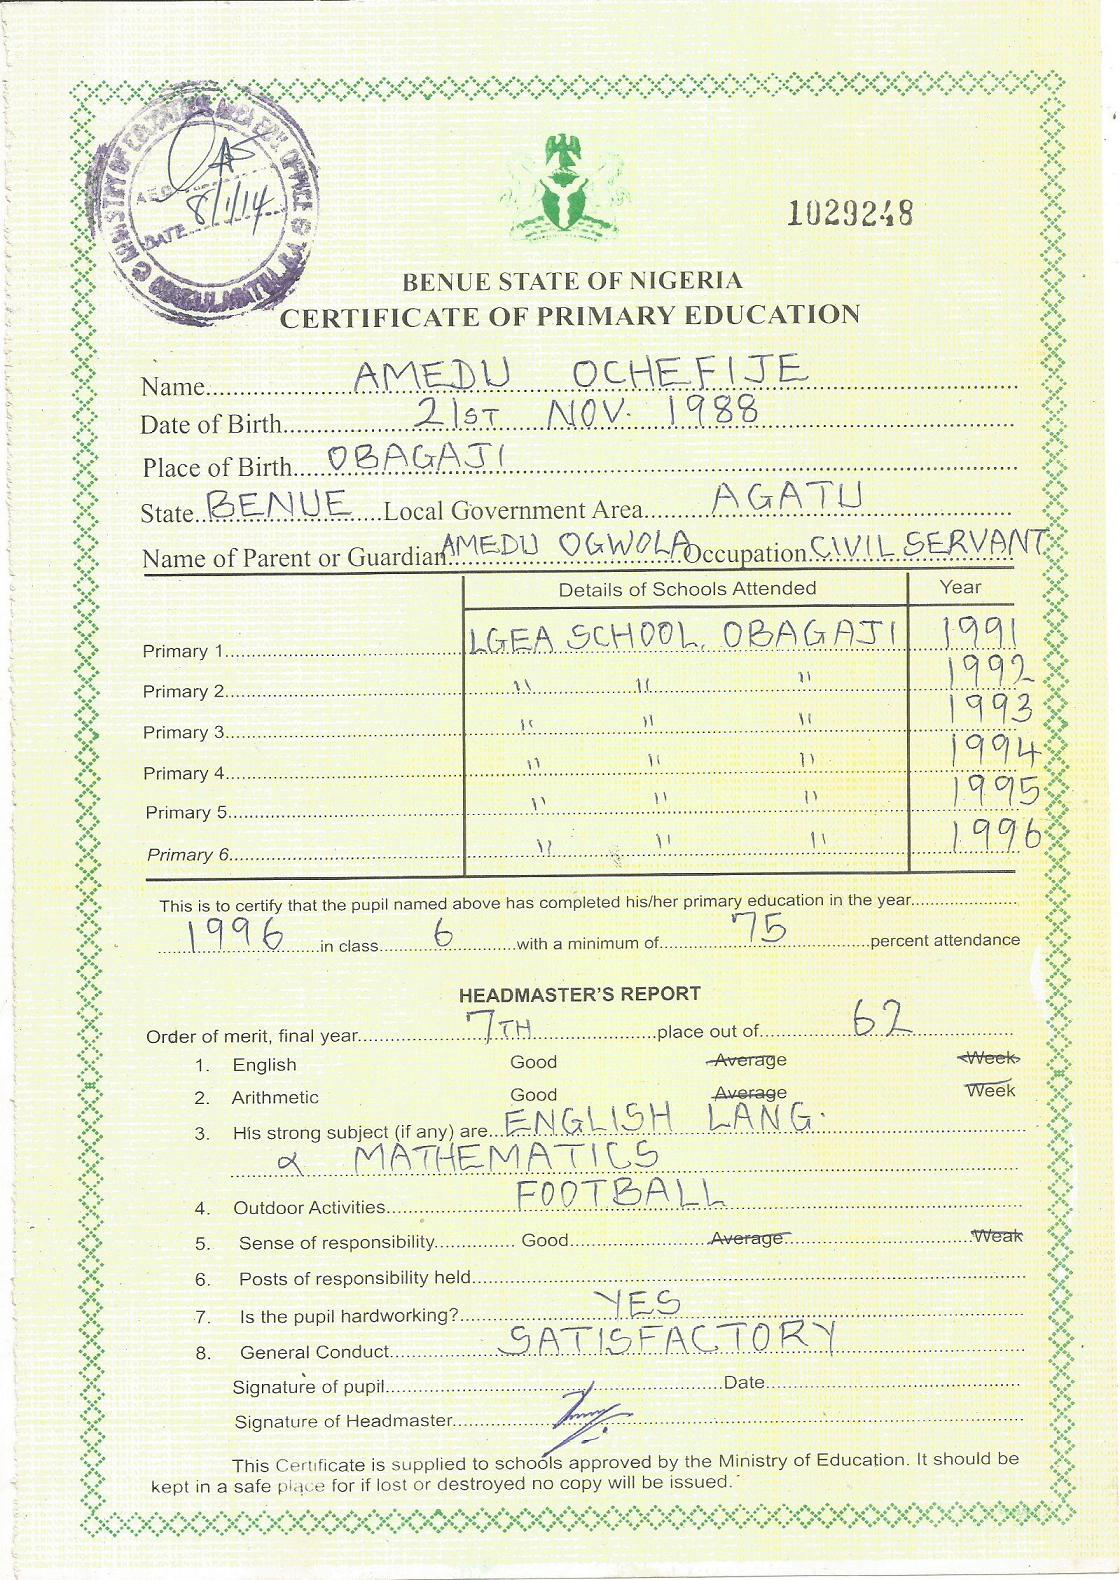 MINISTRY OF EDUCATION AREA EDU. OFFICE
AEO
8/1/14
DATE
1029248
BENUE STATE OF NIGERIA
CERTIFICATE OF PRIMARY EDUCATION
Name AMEDU OCHEFIJE
Date of Birth 21ST NOV. 1988
Place of Birth OBAGAJI
State BENUE Local Government Area AGATU
Name of Parent or Guardian AMEDU OGWOLA Occupation CIVIL SERVANT
Details of Schools Attended Year
Primary 1 LGEA SCHOOL, OBAGAJI 1991
Primary 2 " " " 1992
Primary 3 " " " 1993
Primary 4 " " " 1994
Primary 5 " " " 1995
Primary 6 " " " 1996
This is to certify that the pupil named above has completed his/her primary education in the year
1996 in class 6 with a minimum of 75 percent attendance
HEADMASTER'S REPORT
Order of merit, final year 7TH place out of 62
1. English Good Average Week
2. Arithmetic Good Average Week
3. His strong subject (if any) are ENGLISH LANG.
& MATHEMATICS
4. Outdoor Activities FOOTBALL
5. Sense of responsibility Good Average Weak
6. Posts of responsibility held
7. Is the pupil hardworking? YES
8. General Conduct SATISFACTORY
Signature of pupil Date
Signature of Headmaster
This Certificate is supplied to schools approved by the Ministry of Education. It should be
kept in a safe place for if lost or destroyed no copy will be issued.